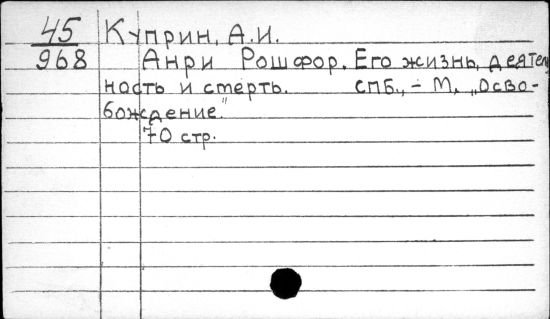 45 Куприн, А.И.
968 Анри Рошфор. Его жизнь, деятель
ность и смерть. СПБ., – М, „Осво-
бождение."
70 стр.